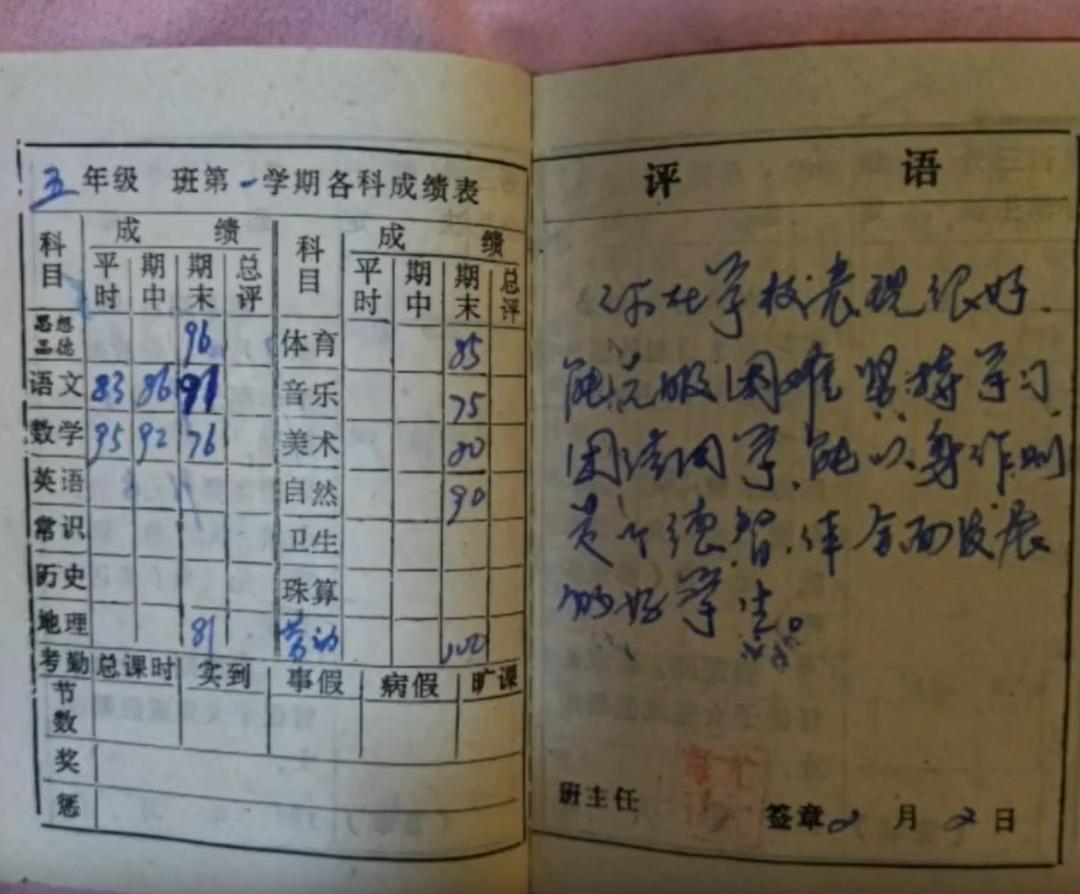 五年级 班第一学期各科成绩表
科目 成绩 科目 成绩
平时 期中 期末 总评 平时 期中 期末 总评
思想品德 96 体育 85
语文 83 86 91 音乐 75
数学 95 92 76 美术 80
英语 自然 90
常识 卫生
历史 珠算
地理 81 劳动 100
考勤 总课时 实到 事假 病假 旷课
节数
奖
惩
评 语
你在学校表现很好
能克服困难坚持学习
团结同学、能以身作则
是个德智、体全面发展
的好学生。
班主任
签章 2 月 2 日